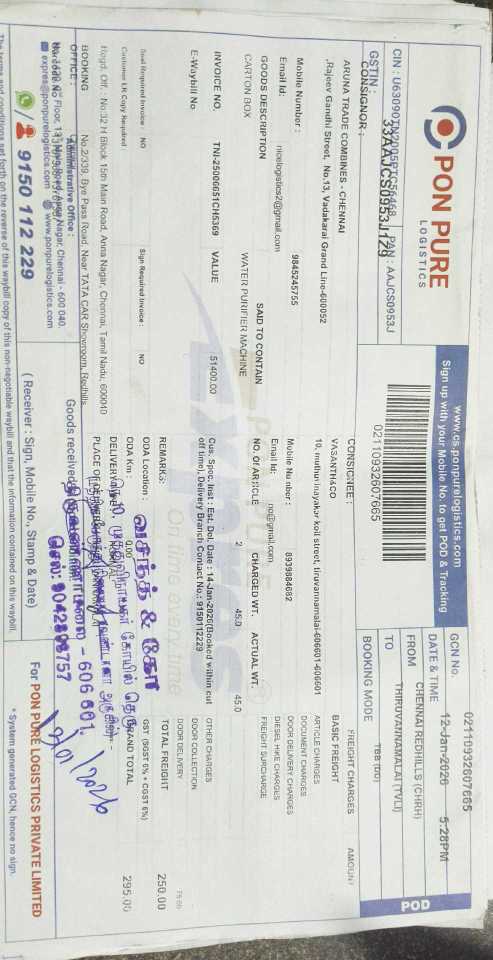 PON PURE
LOGISTICS
www.cs.ponpurelogistics.com
Sign up with your Mobile No. to get POD & Tracking
02110932607665
CIN : U63090TN2005PTC56458 PAN : AAJCS0953J
GSTIN : 33AAJCS0953J1Z9
GCN No. 02110932607665
DATE & TIME 12-Jan-2026 5:28PM
FROM CHENNAI REDHILLS (CHRH)
TO THIRUVANNAMALAI (TVLI)
BOOKING MODE TBB
POD
CONSIGNOR :
ARUNA TRADE COMBINES - CHENNAI
,Rajeev Gandhi Street, No.13, Vadakarai Grand Line-600052
Mobile Number : 9845245755
Email Id: nicelogistics2@gmail.com
CONSIGNEE :
VASANTH&CO
10, muthuvinayakor koil street, tiruvannamalai-606601-606601
Mobile Number : 8939884682
Email Id: no@gmail.com
GOODS DESCRIPTION SAID TO CONTAIN NO. Of ARTICLE CHARGED WT. ACTUAL WT.
CARTON BOX WATER PURIFIER MACHINE 2 45.0 45.0
INVOICE NO, TNJ-25000651CH5369 VALUE 51400.00
E-Waybill No
Cus. Spec. Inst : Est. Del. Date : 14-Jan-2026(Booked within cut
off time), Delivery Branch Contact No.: 9150112229
FREIGHT CHARGES AMOUNT
BASIC FREIGHT
ARTICLE CHARGES
DOCUMENT CHARGES
DOOR DELIVERY CHARGES
DIESEL HIKE CHARGES
FREIGHT SURCHARGE
OTHER CHARGES
DOOR COLLECTION
DOOR DELIVERY 75.00
TOTAL FREIGHT 250.00
GST (SGST 6% + CGST 6%)
GRAND TOTAL 295.00
Seal Required Invoice : NO Sign Required Invoice : NO
Customer LR Copy Required
REMARKS:
ODA Location :
ODA Km : 0.00
Regd. Off. : No.32 H Block 15th Main Road, Anna Nagar, Chennai, Tamil Nadu, 600040
BOOKING OFFICE : No 2/339, Bye Pass Road, Near TATA CAR Showroom, Redhills,
Administrative Office :
Floor, 13th Main Road, Anna Nagar, Chennai - 600 040.
express@ponpurelogistics.com www.ponpurelogistics.com
9150 112 229
வசந்த் & கோ
- 606 601.
செல்: 9042808757
Goods received
( Receiver : Sign, Mobile No., Stamp & Date)
For PON PURE LOGISTICS PRIVATE LIMITED
* System generated GCN, hence no sign.
The terms and conditions set forth on the reverse of this waybill copy of this non-negotiable waybill and that the information contained on this waybill.